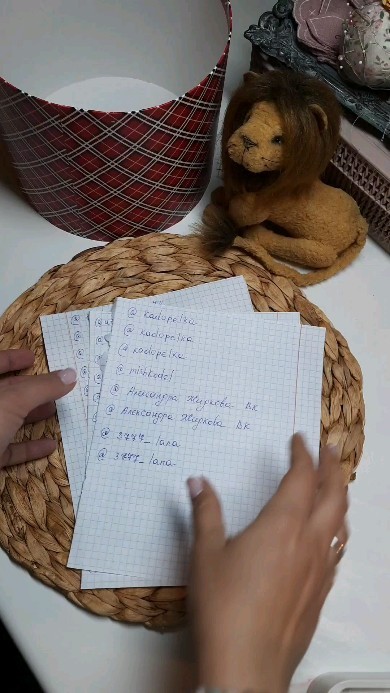 @ kadopelka
@ kadopelka
@ kadopelka
@ mishkodel
@ Александра Жиркова ВК
@ Александра Жиркова ВК
@ 3777_lana
@ 3777_lana